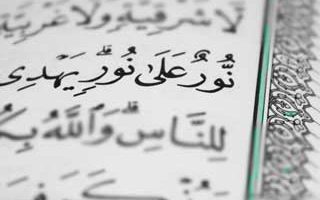 لَّا شَرْقِيَّةٍ وَلَا غَرْبِيَّةٍ
نُّورٌ عَلَىٰ نُورٍ ۗ يَهْدِي
لِلنَّاسِ ۗ وَاللَّهُ بِكُ